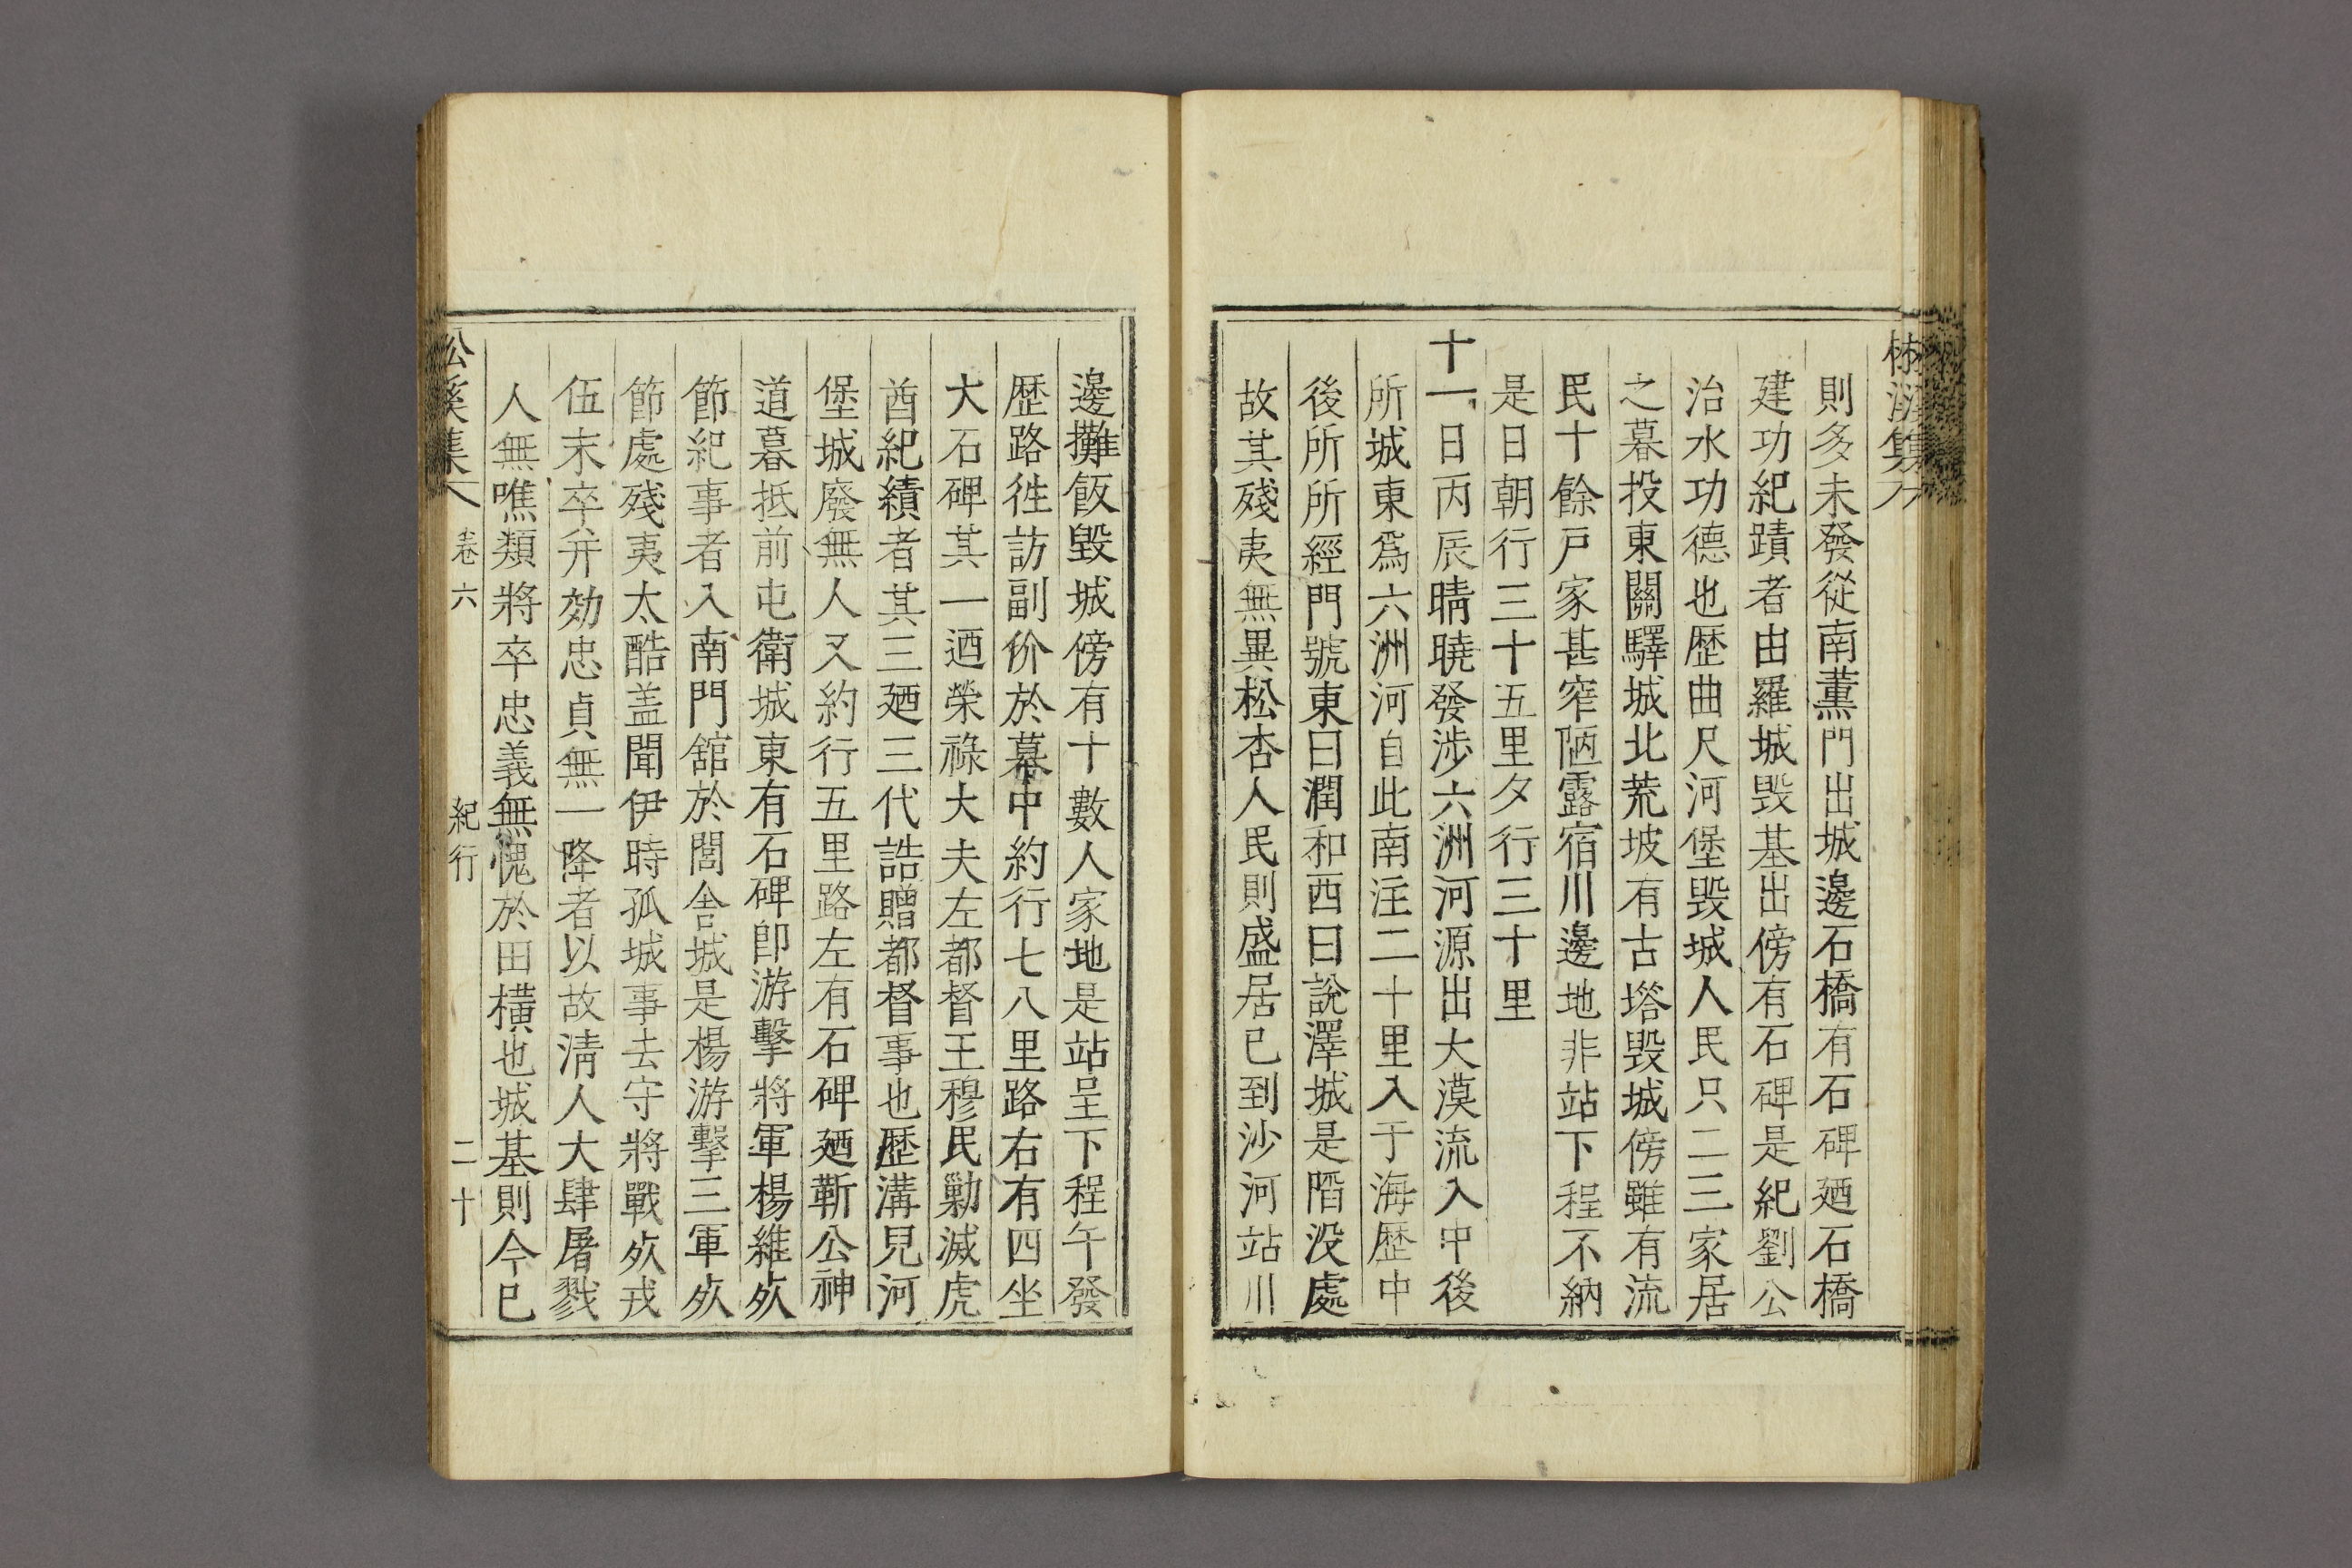 則多未發從南薰門出城邊石橋有石碑廼石橋
建功紀蹟者由羅城毁基出傍有石碑是紀劉公
治水功德也歷曲尺河堡毁城人民只二三家居
之暮投東關驛城北荒坡有古塔毁城傍雖有流
民十餘戶家甚窄陋露宿川邊地非站下程不納
是日朝行三十五里夕行三十里
十一日丙辰晴曉發涉六洲河源出大漠流入中後
所城東爲六洲河自此南注二十里入于海歷中
後所所經門號東曰潤和西曰說澤城是陷没處
故其殘夷無異松杏人民則盛居已到沙河站川
邊攤飯毁城傍有十數人家地是站呈下程午發
歷路徃訪副价於幕中約行七八里路右有四坐
大石碑其一廼榮祿大夫左都督王穆民勦滅虎
酋紀績者其三廼三代誥贈都督事也歷溝兒河
堡城廢無人又約行五里路左有石碑廼靳公神
道暮抵前屯衛城東有石碑卽游擊將軍楊維㱟
節紀事者入南門舘於閭舍城是楊游擊三軍㱟
節處殘夷太酷盖聞伊時孤城事去守將戰㱟戎
伍末卒并効忠貞無一降者以故淸人大肆屠戮
人無噍類將卒忠義無愧於田橫也城基則今已
松溪集 卷六 紀行 二十